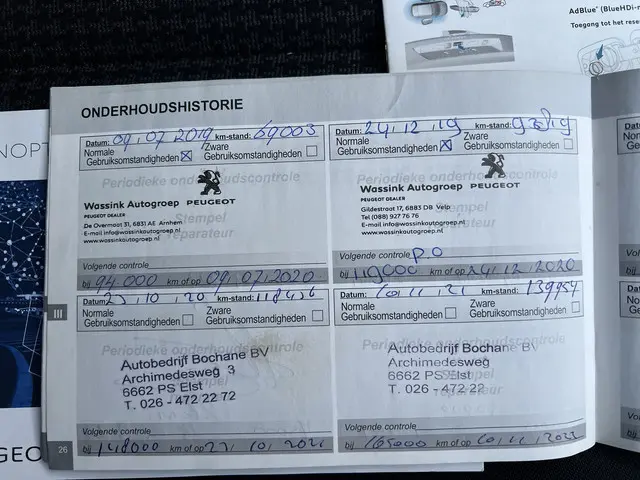 AdBlue® (BlueHDi-m
Toegang tot het reser
NOPT
ONDERHOUDSHISTORIE
Datum: 09.07 2019 km-stand: 69003
Normale Gebruiksomstandigheden ☒
Zware Gebruiksomstandigheden ☐
Periodieke onderhoudscontrole
Wassink Autogroep
PEUGEOT
PEUGEOT DEALER
Stempel
De Overmaat 31, 6831 AE Arnhem
reparateur
E-mail info@wassinkautogroep.nl
www.wassinkautogroep.nl
Volgende controle
bij 94.000 km of op 09.07.2020
Datum: 24.12.19 km-stand:
Normale Gebruiksomstandigheden ☒
Zware Gebruiksomstandigheden ☐
Periodieke onderhoudscontrole
Wassink Autogroep
PEUGEOT
PEUGEOT DEALER
Stempel
Gildestraat 17, 6883 DB Velp
Tel (088) 927 76 76
reparateur
E-mail info@wassinkautogroep.nl
www.wassinkautogroep.nl
Volgende controle P.O
bij 119000 km of op 24.12.2020
III
Datum: .10.20 km-stand:
Normale Gebruiksomstandigheden ☐
Zware Gebruiksomstandigheden ☐
Periodieke onderhoudscontrole
Autobedrijf Bochane BV
Archimedesweg 3
6662 PS Elst
T. 026 - 472 22 72
Volgende controle
bij 148000 km of op .10.2021
Datum: 10.11.21 km-stand:
Normale Gebruiksomstandigheden ☐
Zware Gebruiksomstandigheden ☐
Periodieke onderhoudscontrole
Autobedrijf Bochane BV
Archimedesweg
6662 PS Elst
T. 026 - 472 22
Stempel
reparateur
Volgende controle
bij 165000 km of op 10.11.2022
26
GEO